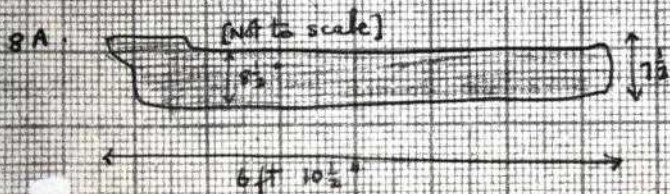 8A.
[Not to scale]
8½"
7½
6 ft 10½"